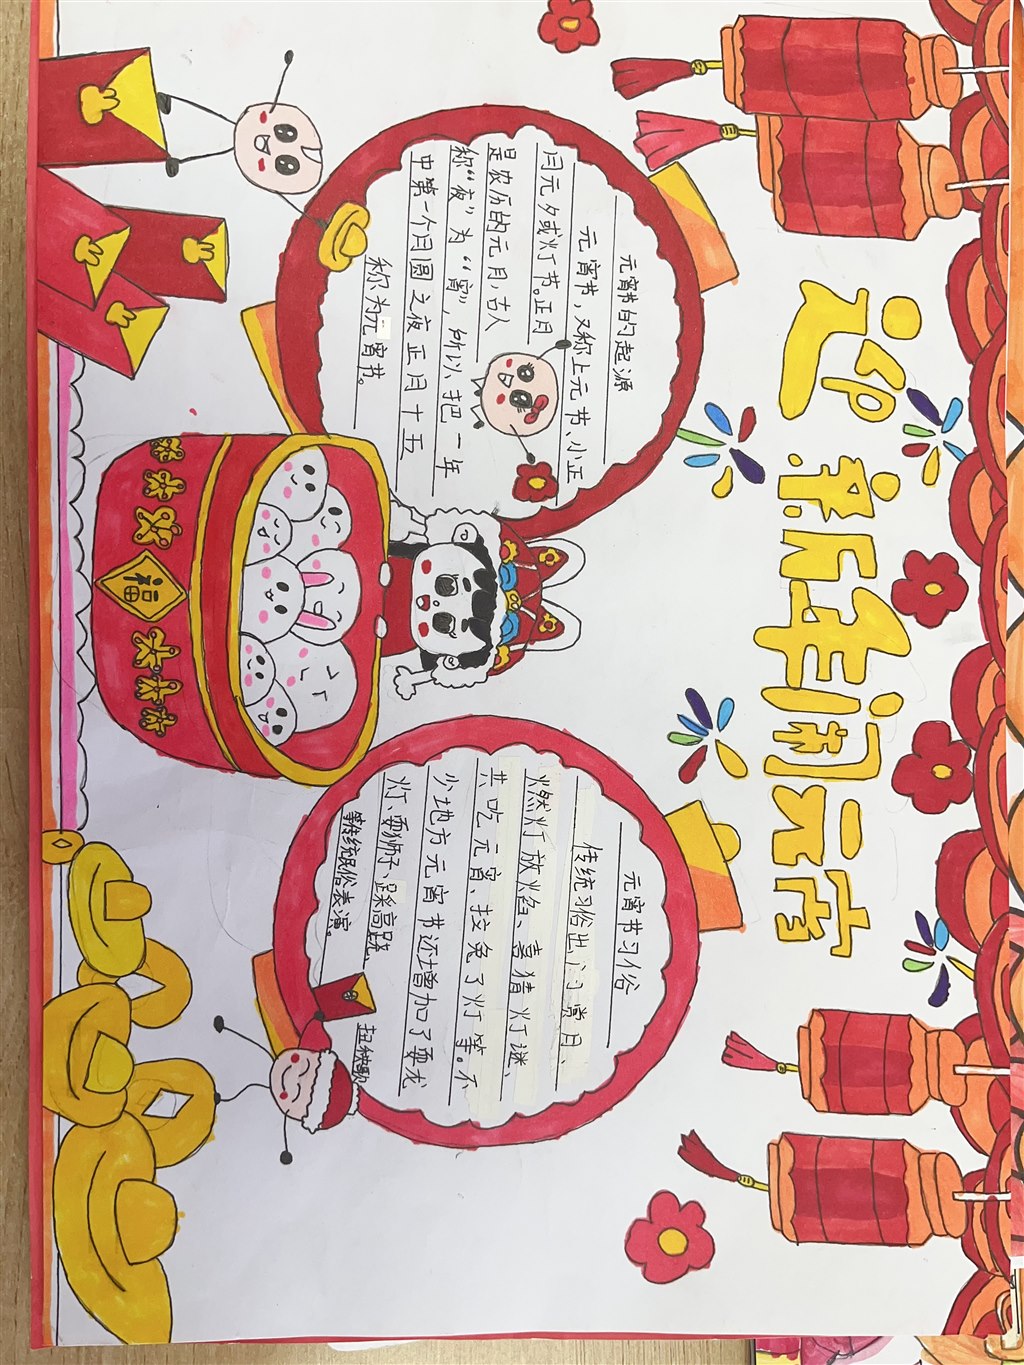 迎新年闹元宵
元宵节的起源
元宵节,又称上元节、小正
月元夕或灯节。正月
是农历的元月,古人
称“夜”为“宵”,所以把一年
中第一个月圆之夜正月十五
称为元宵节。
福
元宵节习俗
传统习俗出门赏月、
燃灯放焰、喜猜灯谜、
共吃元宵、拉兔子灯等。不
少地方元宵节还增加了耍龙
灯、耍狮子、踩高跷、扭秧歌
等传统民俗表演。